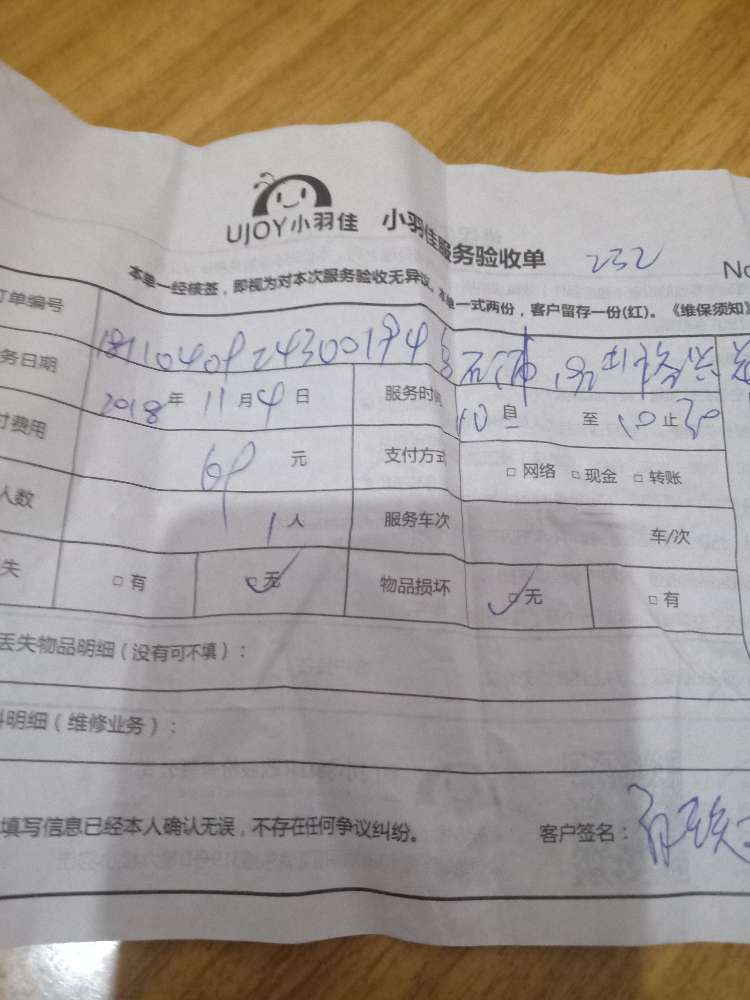 UJOY小羽佳 小羽佳服务验收单 232 No
本单一经核签，即视为对本次服务验收无异议。本单一式两份，客户留存一份(红)。《维保须知》
订单编号
务日期 2018年 11月4日 服务时间 10自 至 10止30
付费用 69元 支付方式 □网络 □现金 □转账
人数 1人 服务车次 车/次
失 □有 □无 物品损坏 □无 □有
丢失物品明细（没有可不填）：
料明细（维修业务）：
填写信息已经本人确认无误，不存在任何争议纠纷。 客户签名：